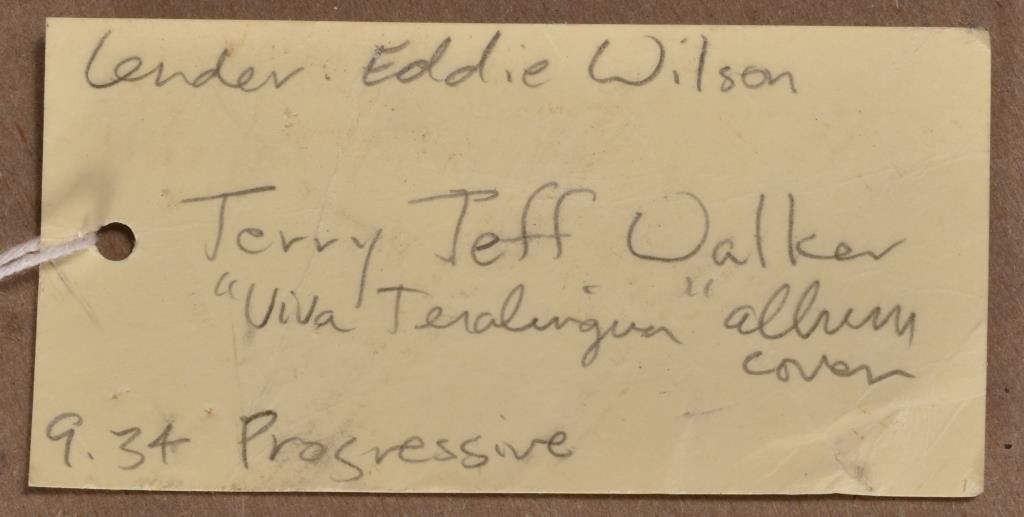 Lender. Eddie Wilson
Jerry Jeff Walker
"Viva Teralingua" album
cover
9.34 Progressive